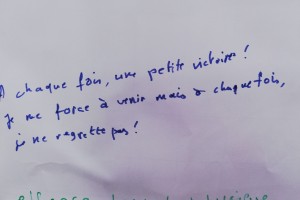 A chaque fois, une petite victoire !
je me force à venir mais à chaque fois,
je ne regrette pas !